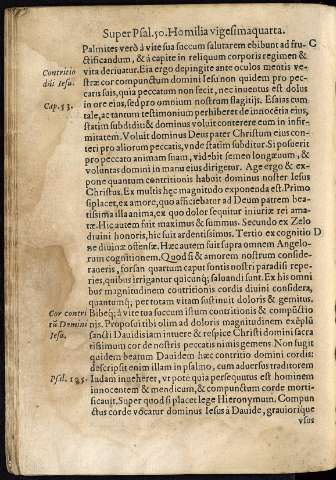 Super Psal.50. Homilia vigesimaquarta.
Palmites verò à vite sua succum salutarem ebibunt ad fru- C
ctificandum, & à capite in reliquum corporis regimen &
vita deriuatur. Eia ergo depingite ante oculos mentis ve-
Contritio
dñi Iesu.
stræ cor compunctum domini Iesu non quidem pro pec-
catis suis, quia peccatum non fecit, nec inuentus est dolus
Cap. 53.
in ore eius, sed pro omnium nostrum flagitijs. Esaias cum
tale, ac tantum testimonium perhiberet de innocētia eius,
statim subdidit: & dominus voluit conterere eum in infir-
mitatem. Voluit dominus Deus pater Christum eius con-
teri pro aliorum peccatis, vnde statim subditur. Si posuerit
pro peccato animam suam, videbit semen longæuum, &
voluntas domini in manu eius dirigetur. Age ergo & ex-
pone quantum contritionis habuit dominus noster Iesus
Christus. Ex multis hęc magnitudo exponenda est. Primo
si placet, ex amore, quo afficiebatur ad Deum patrem bea-
tissima illa anima, ex quo dolor sequitur iniuriæ rei ama-
tæ. Hic autem fuit maximus & summus. Secundo ex Zelo
diuini honoris, hic fuit ardentissimus. Tertio ex cognitio D
ne diuinæ offensæ. Hæc autem fuit supra omnem Angelo-
rum cognitionem. Quod si & amorem nostrum conside-
raueris, forsan quartum caput fontis nostri paradisi repe-
ries, quibus irrigantur quicunq; saluandi sunt. Ex his omni
bus magnitudinem contritionis cordis diuini considera,
quantumq; per totam vitam sustinuit doloris & gemitus.
Cor contri
tū Domini
Iesu.
Bibesq; à vite tua succum istum contritionis & compūctio
nis. Proposui tibi olim ad doloris magnitudinem exēplū
sancti Dauidis iam intuere & respice Christi domini sacra
tissimum cor de nostris peccatis nimis gemens Non fugit
quidem beatum Dauidem hæc contritio domini cordis:
descripsit enim illam in psalmo, cum aduersus traditorem
Psal. 108.
Iudam inueheret, vt pote quia persequutus est hominem
innocentem & mendicum, & compunctum corde morti-
ficauit. Super quod si placet lege Hieronymum. Compun
ctus corde vocatur dominus Iesus à Dauide, grauiorique
vsus